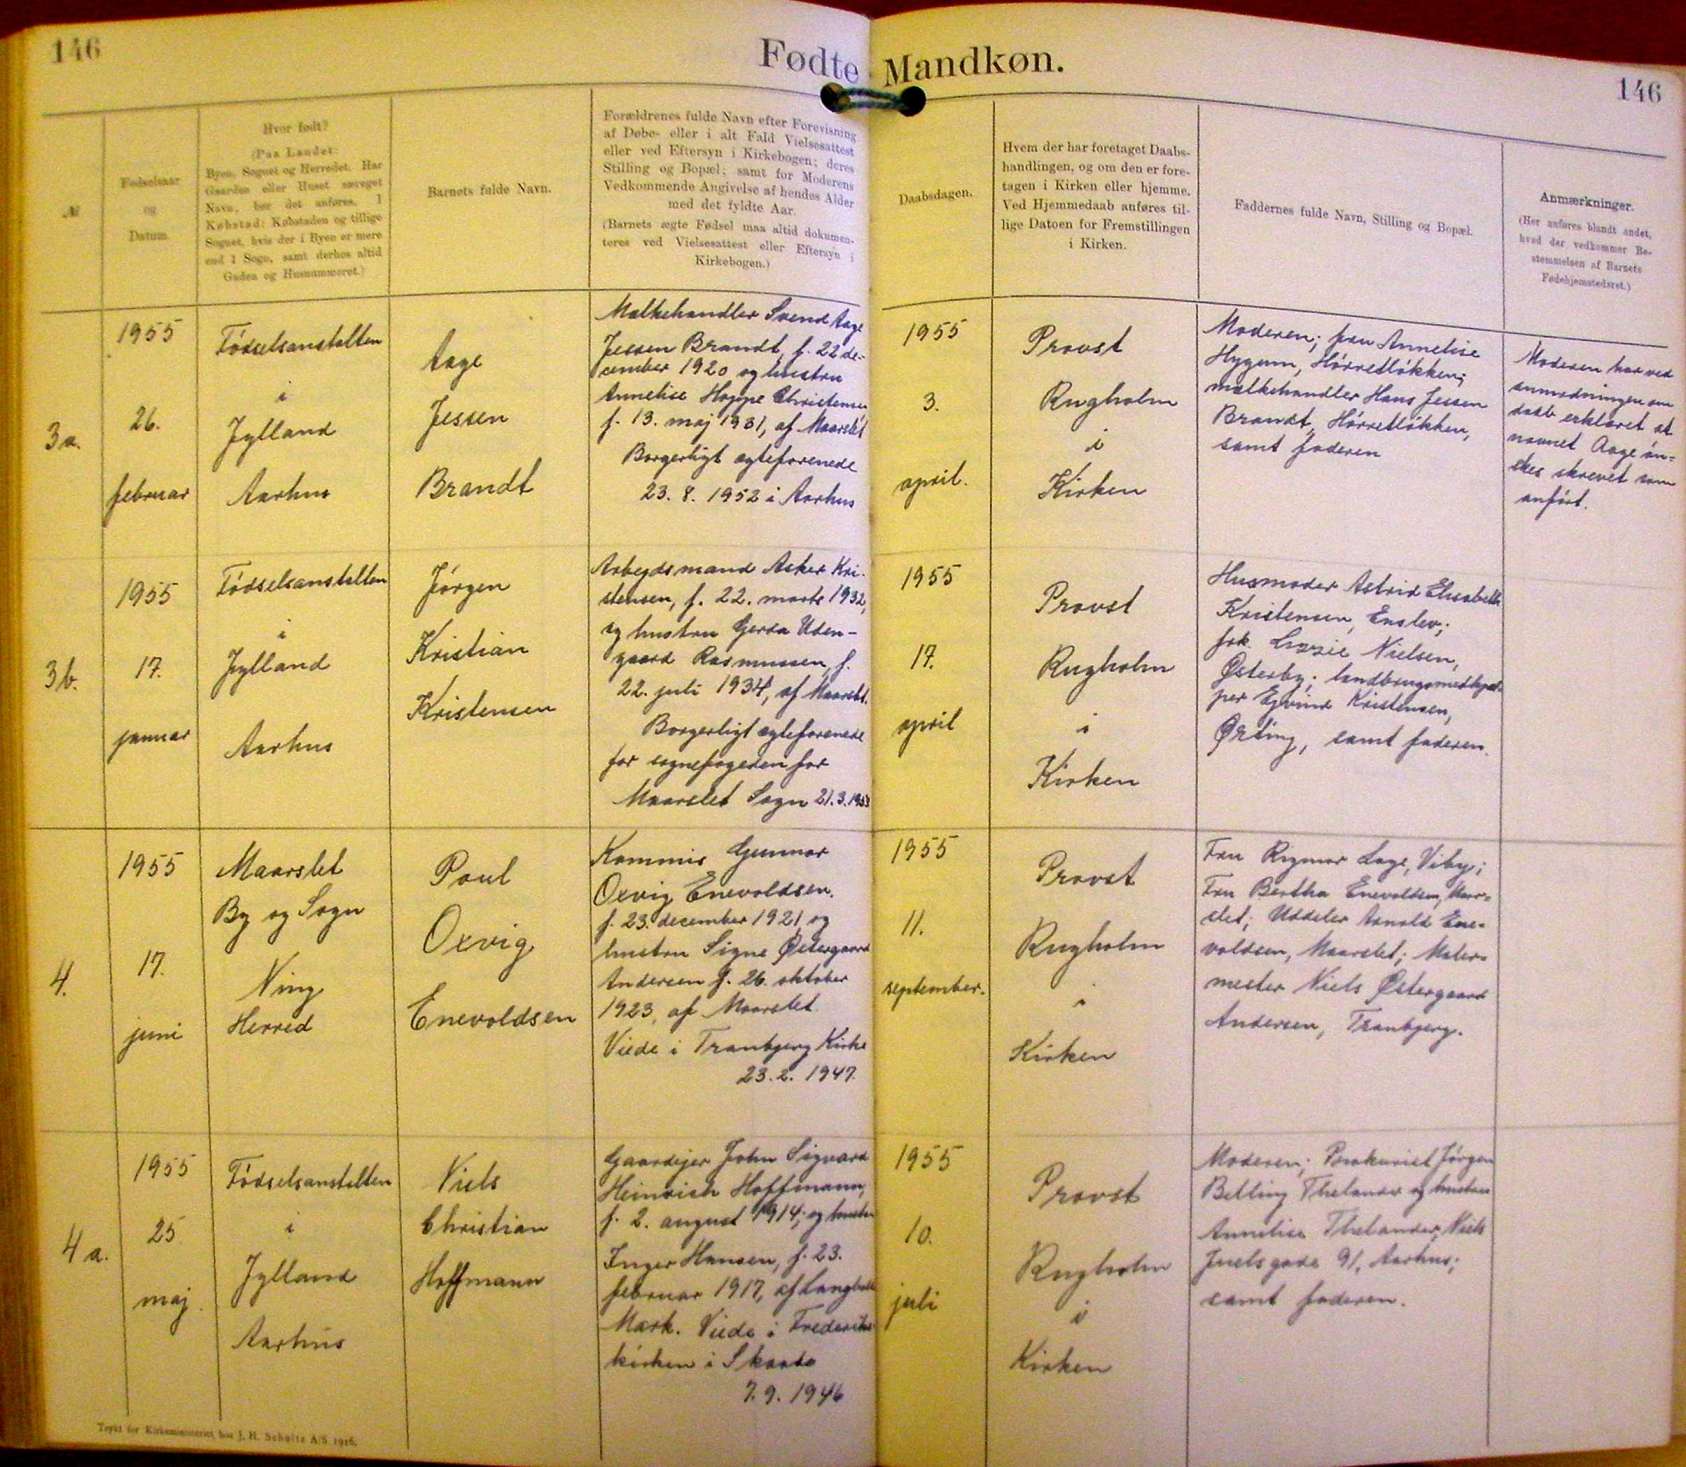 146
Fødte Mandkøn.
146
№
Fødselsaar
og
Datum.
Hvor født?
(Paa Landet:
Byen, Sognet og Herredet. Har
Gaarden eller Huset særeget
Navn, bør det anføres. I
Købstad: Købstaden og tillige
Sognet, hvis der i Byen er mere
end 1 Sogn, samt derhos altid
Gaden og Husnummeret.)
Barnets fulde Navn.
Forældrenes fulde Navn efter Forevisning
af Døbe- eller i alt Fald Vielsesattest
eller ved Eftersyn i Kirkebogen; deres
Stilling og Bopæl; samt for Moderens
Vedkommende Angivelse af hendes Alder
med det fyldte Aar.
(Barnets ægte Fødsel maa altid dokumen-
teres ved Vielsesattest eller Eftersyn i
Kirkebogen.)
Daabsdagen.
Hvem der har foretaget Daabs-
handlingen, og om den er fore-
tagen i Kirken eller hjemme.
Ved Hjemmedaab anføres til-
lige Datoen for Fremstillingen
i Kirken.
Faddernes fulde Navn, Stilling og Bopæl.
Anmærkninger.
(Her anføres blandt andet,
hvad der vedkommer Be-
stemmelsen af Barnets
Fødehjemstedsret.)
3a.
1955
26.
februar
Fødselsanstalten
i
Jylland
Aarhus
Aage
Jessen
Brandt
Mælkehandler Svend Aage
Jessen Brandt, f. 22 de-
cember 1920 og hustru
Annelise Hoppe Christensen
f. 13. maj 1931, af Maarslet
Borgerligt ægteforenede
23. 8. 1952 i Aarhus
1955
3.
april.
Provst
Rugholm
i
Kirken
Moderen; fru Annelise
Hygum, Hørretløkken;
mælkehandler Hans Jessen
Brandt, Hørretløkken,
samt faderen
Moderen har ved
anmodningen om
daab erklæret at
navnet Aage øn-
skes skrevet som
anført.
3b.
1955
17.
januar
Fødselsanstalten
i
Jylland
Aarhus
Jørgen
Kristian
Kristensen
Arbejdsmand Asker Kri-
stensen, f. 22. marts 1932,
og hustru Gerda Uden-
gaard Rasmussen, f.
22. juli 1934, af Maarslet.
Borgerligt ægteforenede
for sognefogeden for
Maarslet Sogn 21.3.1953
1955
17.
april
Provst
Rugholm
i
Kirken
Husmoder Astrid Elisabeth
Kristensen, Enslev;
frk. Lizzie Nielsen,
Østerby; landbrugsmedhjæl-
per Ejvind Kristensen,
Ørting, samt faderen.
4.
1955
17.
juni
Maarslet
By og Sogn
Ning
Herred
Poul
Oxvig
Enevoldsen
Kommis Gunnar
Oxvig Enevoldsen.
f. 23. december 1921, og
hustru Signe Østergaard
Andersen f. 26. oktober
1923, af Maarslet.
Viede i Tranbjerg Kirke
23. 2. 1947.
1955
11.
september.
Provst
Rugholm
i
Kirken
Fru Rigmor Lage, Viby;
Fru Bertha Enevoldsen, Maar-
slet; Uddeler Arnold Ene-
voldsen, Maarslet; Maler-
mester Niels Østergaard
Andersen, Tranbjerg.
4a.
1955
25
maj.
Fødselsanstalten
i
Jylland
Aarhus
Niels
Christian
Hoffmann
Gaardejer John Sigvard
Heinrich Hoffmann,
f. 2. august 1914, og hustru
Inger Hansen, f. 23.
februar 1917, af Langballe
Mark. Viede i Frederiks-
kirken i Skaade
7. 9. 1946
1955
10.
juli
Provst
Rugholm
i
Kirken
Moderen; Prokurist Jørgen
Belling Thelander og hustru
Annelise Thelander, Niels
Juelsgade 91, Aarhus;
samt faderen.
Trykt for Kirkeministeriet hos J. H. Schultz A/S. 1926.